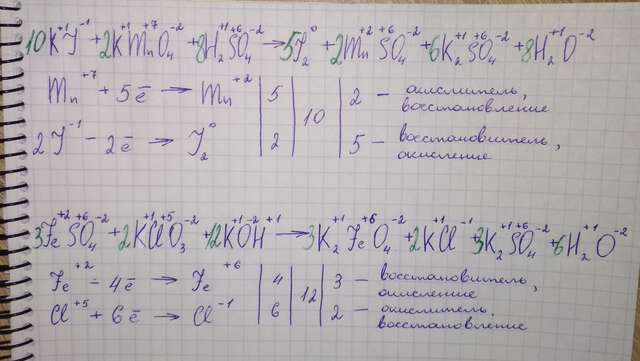 10K⁺¹J⁻¹ + 2K⁺¹Mn⁺⁷O₄⁻² + 8H₂⁺¹S⁺⁶O₄⁻² → 5J₂⁰ + 2Mn⁺²S⁺⁶O₄⁻² + 6K₂⁺¹S⁺⁶O₄⁻² + 8H₂⁺¹O⁻²
Mn⁺⁷ + 5ē → Mn⁺² | 5 | 10 | 2 – окислитель, восстановление
2J⁻¹ – 2ē → J₂⁰ | 2 | | 5 – восстановитель, окисление
3Fe⁺²S⁺⁶O₄⁻² + 2K⁺¹Cl⁺⁵O₃⁻² + 12K⁺¹O⁻²H⁺¹ → 3K₂⁺¹Fe⁺⁶O₄⁻² + 2K⁺¹Cl⁻¹ + 3K₂⁺¹S⁺⁶O₄⁻² + 6H₂⁺¹O⁻²
Fe⁺² – 4ē → Fe⁺⁶ | 4 | 12 | 3 – восстановитель, окисление
Cl⁺⁵ + 6ē → Cl⁻¹ | 6 | | 2 – окислитель, восстановление